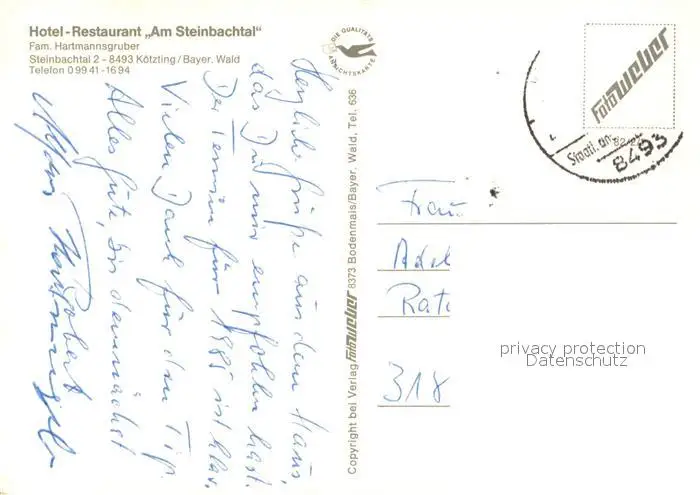 Hotel-Restaurant „Am Steinbachtal“
Fam. Hartmannsgruber
Steinbachtal 2 - 8493 Kötzting/Bayer. Wald
Telefon 0 99 41-16 94
DIE QUALITÄTS
ANSICHTSKARTE
Herzliche Grüße aus dem Haus,
das Du mir empfohlen hast.
Der Termin für 1985 ist klar.
Vielen Dank für den Tip.
Alles Gute, bis demnächst
Robert
Copyright bei Verlag Foto Weber 8373 Bodenmais/Bayer. Wald, Tel. 636
Foto Weber
Staatl. an
8493
Frau
Adel
Rat
318
privacy protection
Datenschutz